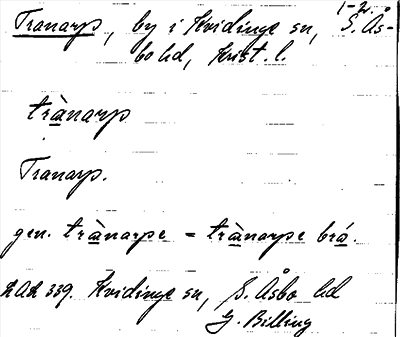 1-2.
Tranarp, by i Kvidinge sn, S. Ås-
bo hd, Krist. l.
trànarp
Tranarp.
gen. trànarpe = trànarpe bró.
LAL 339. Kvidinge sn, S. Åsbo hd
G. Billing